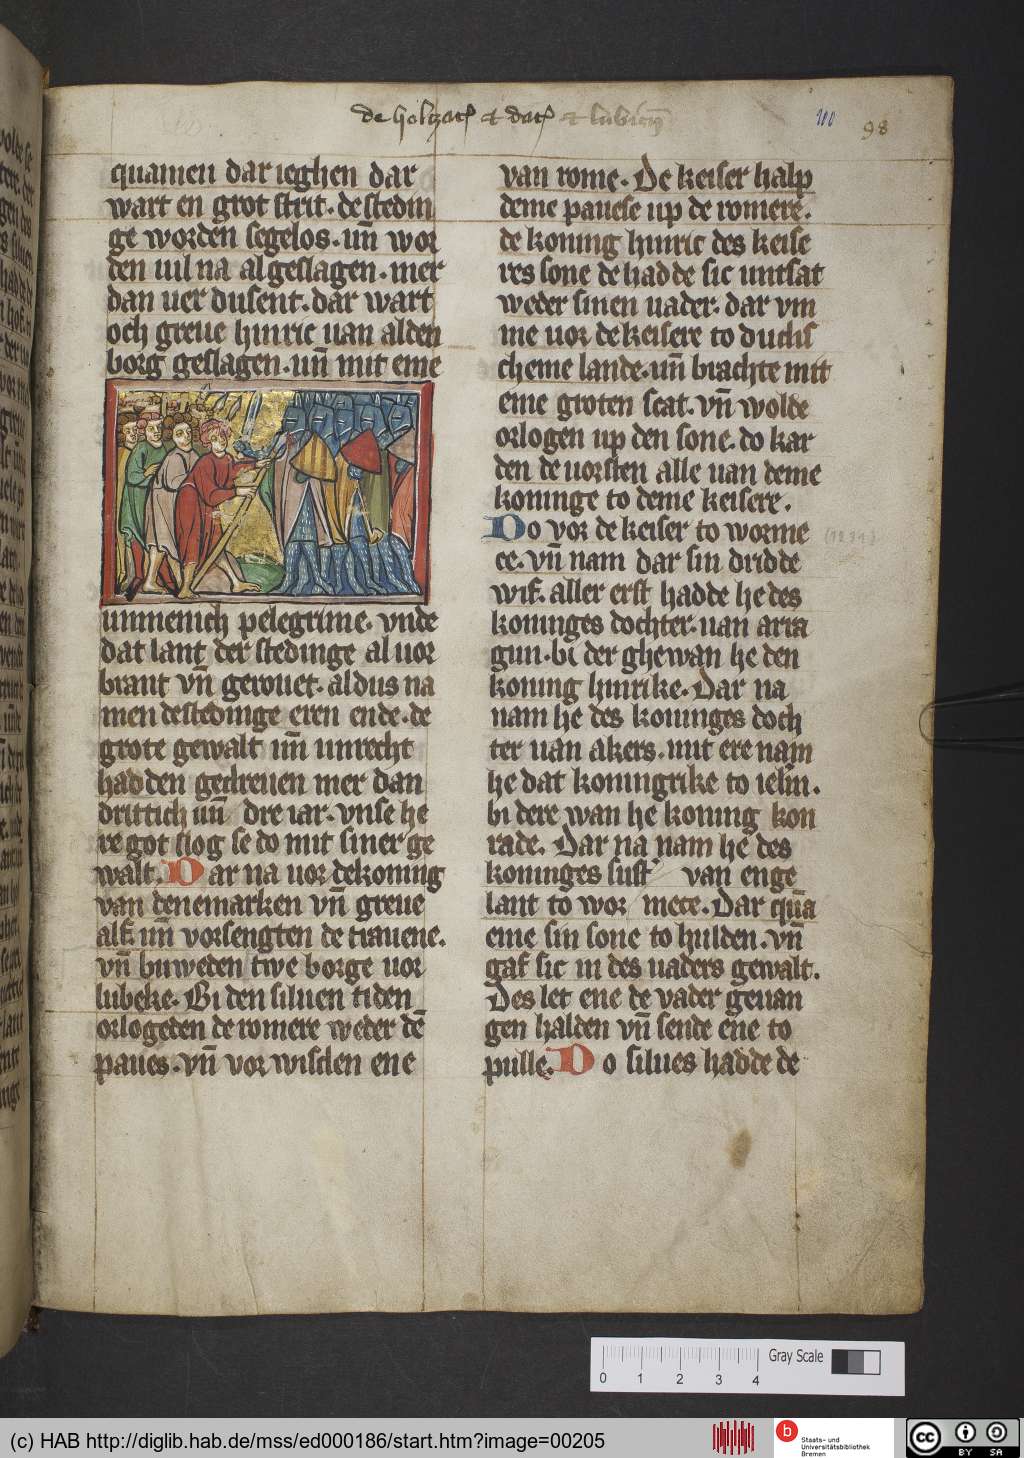 de holtzac et dac et lubicū
98
quamen dar ieghen dar
wart en grot strit. de stedin
ge worden segelos. un̄ wor
den uil na al geslagen. mer
dan uer dusent. dar wart
och greue hinric uan alden
borg geslagen. un̄ mit eme
unmenich pelegrime. vnde
dat lant der stedinge al uor
brant vn̄ gerouet. aldus na
men de stedinge eren ende. de
grote gewalt un̄ unrecht
hadden gedreuen mer dan
drittich un̄ dre iar. vnse he
re got slog se do mit siner ge
walt. Dar na uor de koning
van denemarken vn̄ greue
alf. un̄ vorsengten de trauene.
vn̄ buweden twe borge uor
lubeke. Bi den siluen tiden
orlogeden de romere weder dē
paues. vn̄ vor wisden ene
van rome. De keiser halp
deme pauese up de romere.
de koning hinric des keise
res sone de hadde sic untsat
weder sinen uader. dar vm
me uor de keisere to dudis
cheme lande. un̄ brachte mit
eme groten scat. vn̄ wolde
orlogen up den sone. do kar
den de uorsten alle uan deme
koninge to deme keisere.
Do vor de keiser to worme
ce. vn̄ nam dar sin dridde
wif. aller erst hadde he des
koninges dochter. uan arra
gun. bi der ghewan he den
koning hinrike. Dar na
nam he des koninges doch
ter uan akers. mit ere nam
he dat koningrike to ierlm.
bi dere wan he koning kon
rade. Dar na nam he des
koninges sust' van enge
lant to wor mece. Dar quā
eme sin sone to hulden. vn̄
gaf sic in des uaders gewalt.
Des let ene de vader geuan
gen halden vn̄ sende ene to
pulle. Do silues hadde de
0 1 2 3 4 Gray Scale
(c) HAB http://diglib.hab.de/mss/ed000186/start.htm?image=00205
b
Staats- und
Universitätsbibliothek
Bremen
cc BY SA